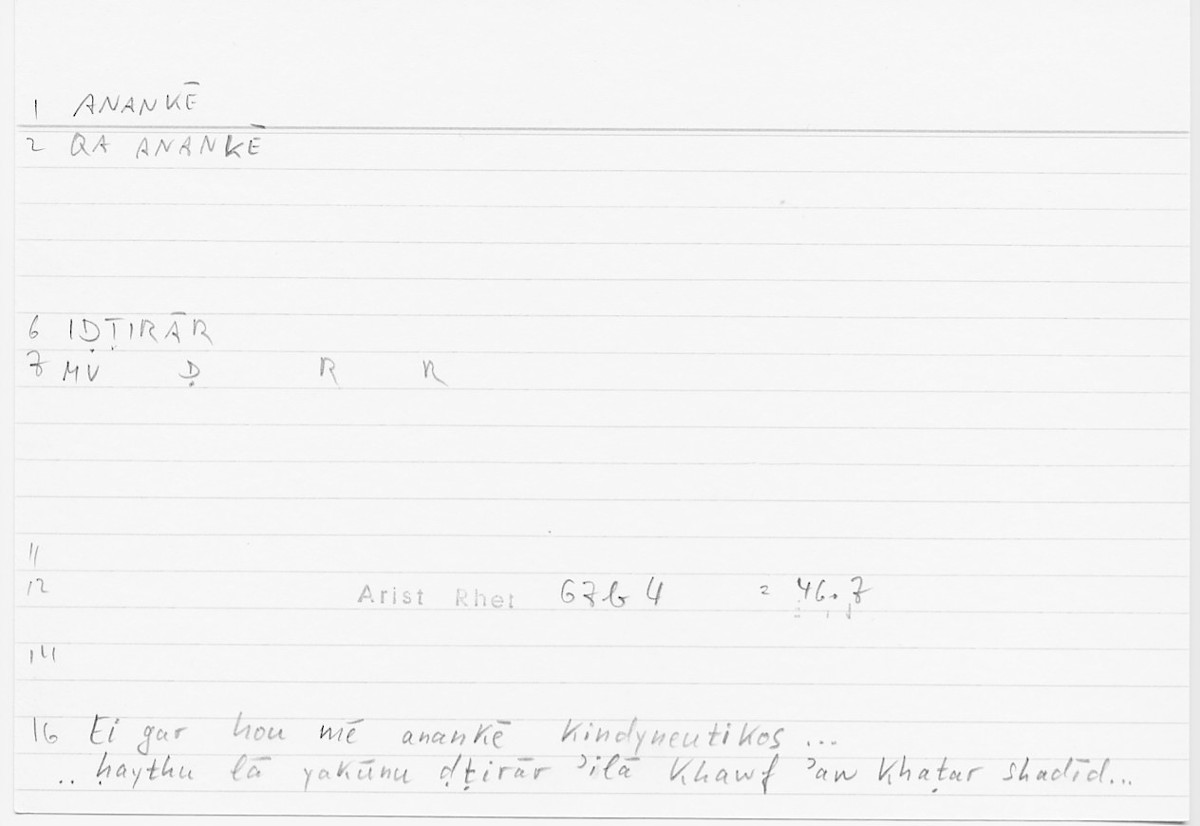 1 ANANKĒ
2 QA ANANKĒ
6 IḌṬIRĀR
7 MV Ḍ R R
11
12 Arist Rhet 67b 4 = 46.7
14
16 Ei gar hou mē anankē kindyneutikos ...
.. ḥaythu lā yakūnu ḍṭirār ʾilā khawf ʾaw khaṭar shadīd...